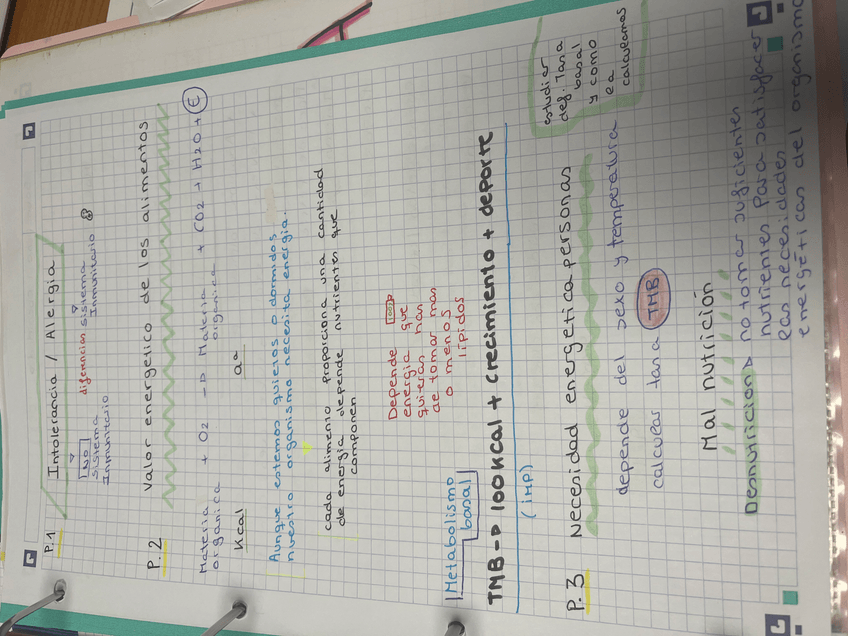 P.1 Intolerancia / Alergia
NO diferencias sistema
sistema Inmunitario
Inmunitario
P.2 Valor energético de los alimentos
Materia + O2 → Materia + CO2 + H2O + E
orgánica orgánica
Kcal
Aunque estemos quietos o dormidos
nuestro organismo necesita energía.
cada alimento proporciona una cantidad
de energía depende nutrientes que
componen
Depende
energía que
quieran han
de tomar mas
o menos
lípidos
Metabolismo
basal
TMB → 100 Kcal + crecimiento + deporte
(IMP)
estudiar
def. Tasa
basal
y como
la
calculamos
P.3 Necesidad energética personas
depende del sexo y temperatura
calcular tasa TMB
Mal nutrición
Desnutrición → no tomar suficientes
nutrientes para satisfacer
las necesidades
energéticas del organismo